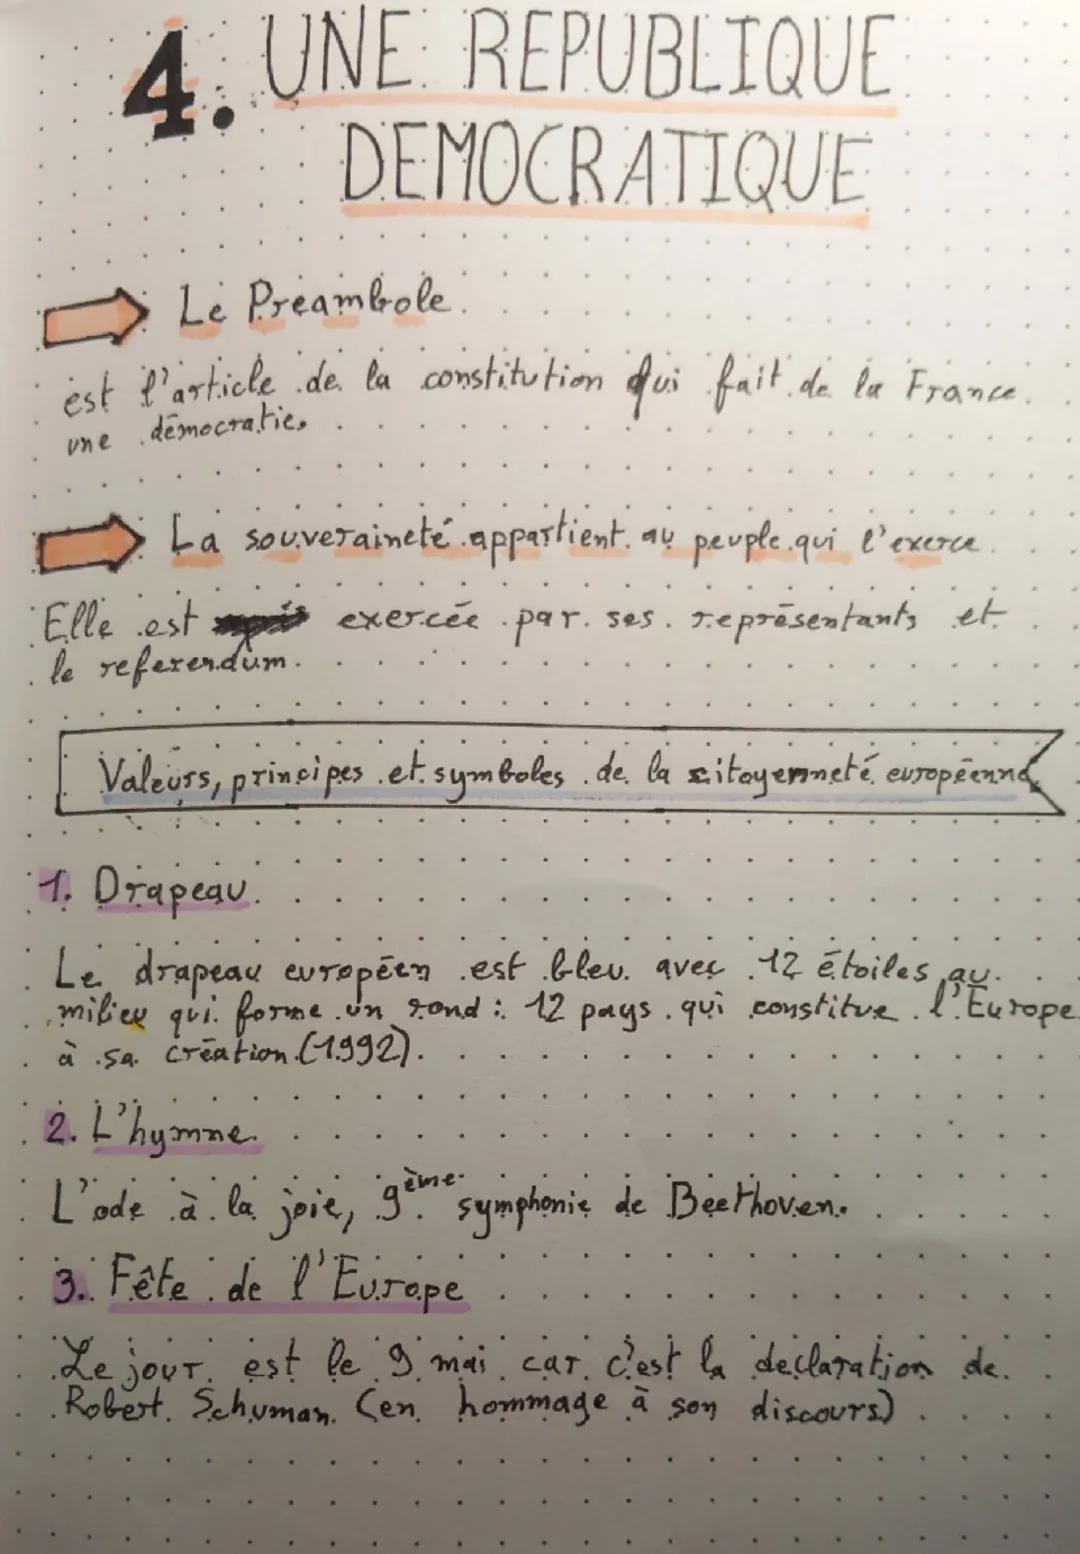 4. UNE REPUBLIQUE
DEMOCRATIQUE
Le Préambole
est l'article de la constitution qui fait de la France
une démocratie.
La souveraineté appartient au peuple qui l'exerce
Elle est exercée par ses représentants et
le referendum.
Valeurs, principes et symboles de la citoyenneté européenne
1. Drapeau
Le drapeau européen est bleu avec 12 étoiles au
milieu qui forme un rond : 12 pays qui constitue l'Europe
à sa création (1992).
2. L'hymne
L'ode à la joie, 9ème symphonie de Beethoven.
3. Fête de l'Europe
Le jour est le 9 mai car c'est la declaration de
Robert Schuman (en hommage à son discours)